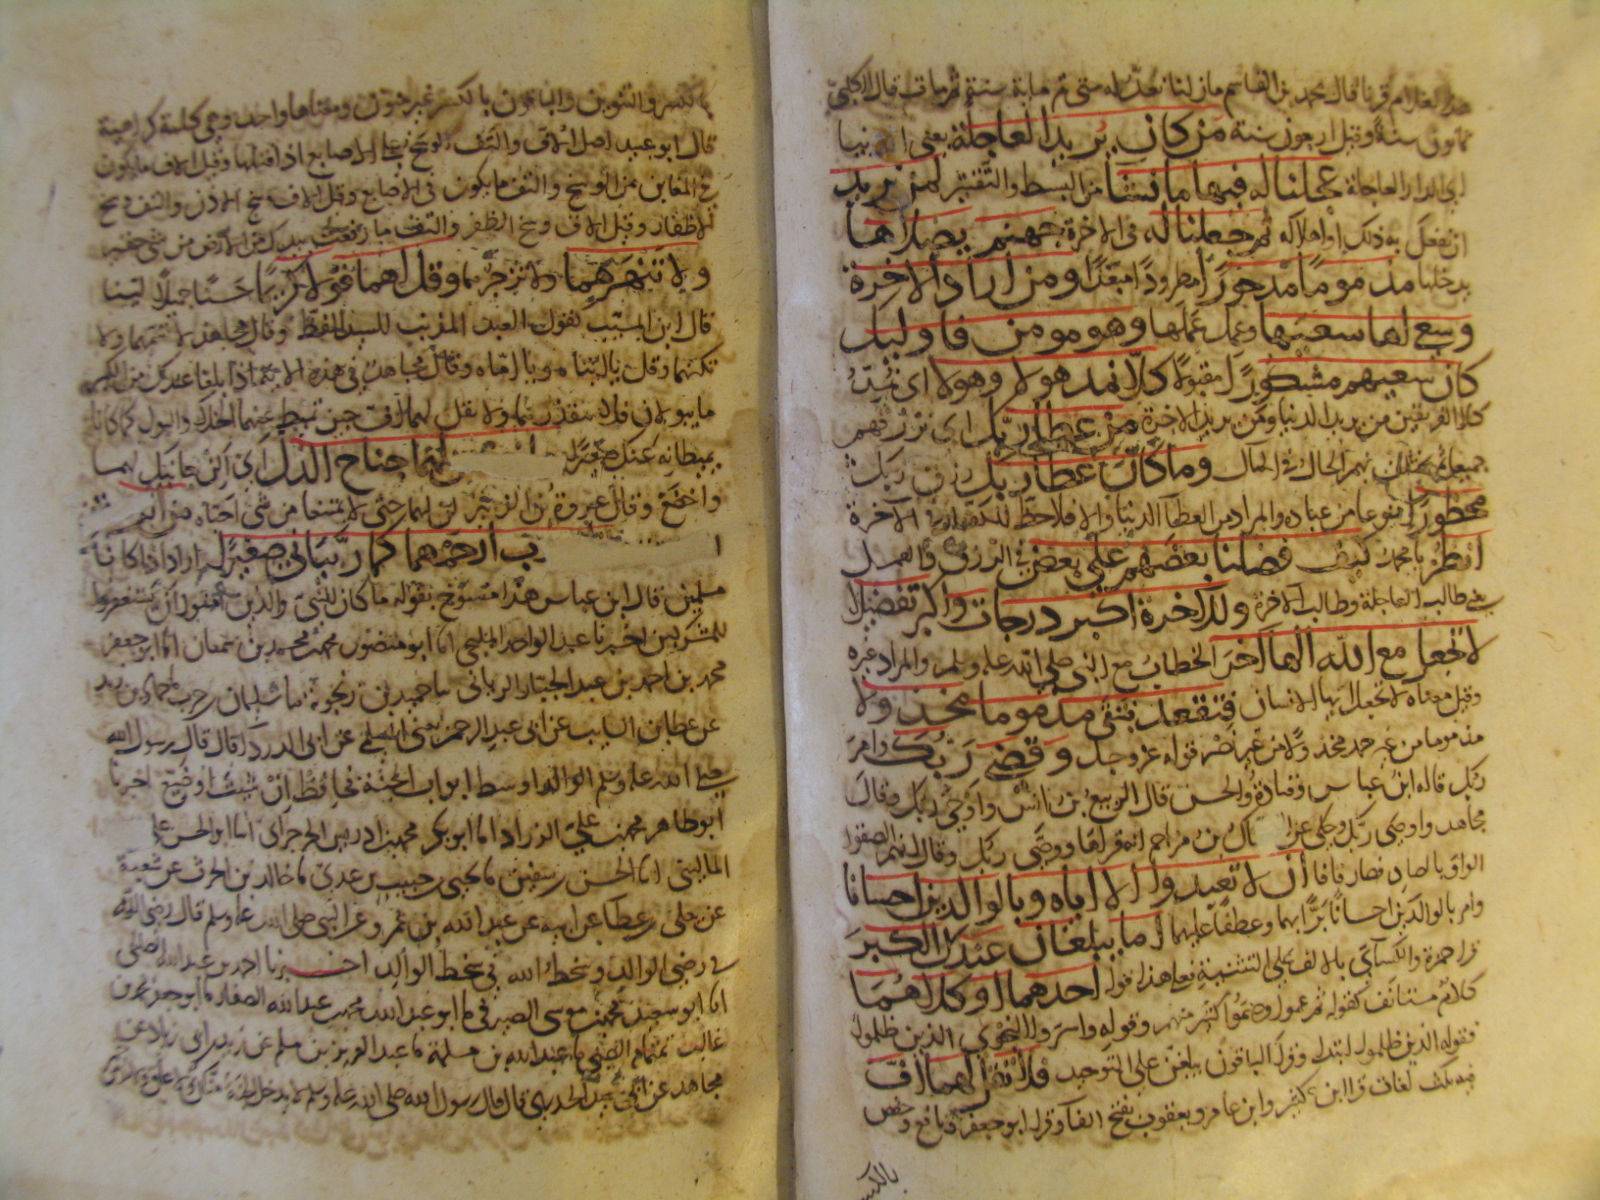 هذا الغلام قرنا قال محمد بن القاسم مازلنا نعد له حتى تم مائة سنة ثم مات قال الكلبي
ثمانون سنة وقيل اربعون سنة من كان يريد العاجلة يعني الدنيا
اي الدار العاجلة عجلنا له فيها ما نشا من البسط والتقتير لمن نريد
ان نفعل به ذلك او اهلاكه ثم جعلنا له في الاخرة جهنم يصلاها
يدخلها مذموما مدحورا مطرودا مبعدا ومن اراد الاخرة
وسعى لها سعيها وعمل عملها وهو مومن فاوليك
كان سعيهم مشكورا مقبولا كلا نمد هولا وهولا اي نمد
كلا الفريقين من يريد الدنيا ومن يريد الاخرة من عطا ربك اي نرزقهم
جميعا ثم يختلف بهم الحال في المال وما كان عطا ربك رزق ربك
محظورا ممنوعا من عباده والمراد من العطا الدنيا والا فلاحظ للكفار في الاخرة
انظر يا محمد كيف فضلنا بعضهم على بعض في الرزق والعمل
يعني طالب العاجلة وطالب الاخرة وللاخرة اكبر درجات واكبر تفضيلا
لا تجعل مع الله الها اخر الخطاب مع النبي صلى الله عليه وسلم والمراد غيره
وقيل معناه لا تجعل ايها الانسان فتقعد فتبقى مذموما مخذولا
مذموما من غير حمد مخذولا من غير نصر قوله عز وجل وقضى ربك وامر
ربك قاله ابن عباس وقتادة والحسن قال الربيع بن انس واوحى ربك وقال
مجاهد واوصى ربك وحكي عن الضحاك بن مزاحم انه قراها ووصى ربك وقال انهم الصقوا
الواو بالصاد فصار قافا ان لا تعبدوا الا اياه وبالوالدين احسانا
وامر بالوالدين احسانا برا بهما وعطفا عليهما اما يبلغان عندك الكبر
قرا حمزة والكسائي بالالف على التثنية فعلى هذا قوله احدهما او كلاهما
كلام مستانف كقوله ثم عموا وصموا كثير منهم وقوله واسروا النجوى الذين ظلموا
فقوله الذين ظلموا ابتدا وقرا الباقون يبلغن على التوحيد فلا تقل لهما اف
فيه ثلث لغات قرا ابن كثير وابن عامر ويعقوب بفتح الفا وقرا ابو جعفر ونافع وحفص
بالكسر
بالكسر والتنوين والباقون بالكسر غير منون ومعناها واحد وهي كلمة كراهية
قال ابو عبيد اصل الاف والتف الوسخ على الاصابع اذا فتلتها وقيل الاف ما يكون
في المغابن من الوسخ والتف ما يكون في الاصابع وقيل الاف وسخ الاذن والتف وسخ
الاظفار وقيل الاف وسخ الظفر والتف ما رفعت بيدك من الارض من شي حقير
ولا تنهرهما ولا تزجرهما وقل لهما قولا كريما حسنا جميلا لينا
قال ابن المسيب كقول العبد المذنب للسيد الفظ وقال مجاهد لا تسمهما ولا
تكنهما وقل يا ابتاه ويا اماه وقال مجاهد في هذه الاية اذا بلغا عندك من الكبر
ما يبولان فلا تتقذرهما ولا تقل لهما اف حين تميط عنهما الخلا والبول كما كانا
يميطانه عنك صغيرا لهما جناح الذل اي الن جانبك لهما
واخضع وقال عروة بن الزبير لن لهما حتى لا يمتنعا من شي احباه من
ب ارحمهما كما ربياني صغيرا اراد اذا كانا
مسلمين قال ابن عباس هذا منسوخ بقوله ما كان للنبي والذين امنوا ان يستغفروا
للمشركين اخبرنا عبد الواحد المليحي انا ابو منصور محمد بن محمد بن سمعان انا ابو جعفر
محمد بن احمد بن عبد الجبار الرياني نا حميد بن زنجويه نا سليمان بن حرب نا حماد بن زيد
عن عطا بن السايب عن ابي عبد الرحمن يعني السلمي عن ابي الدردا قال قال رسول الله
صلى الله عليه وسلم الوالد اوسط ابواب الجنة فحافظ ان شئت او ضيع اخبرنا
ابو طاهر محمد بن علي الزراد انا ابو بكر محمد بن ادريس الجرجراي انا ابو الحسن علي
الماليني انا الحسن بن سفين نا يحيى بن حبيب بن عدي نا خالد بن الحرث عن شعبة
عن يعلى بن عطا عن ابيه عن عبد الله بن عمرو عن النبي صلى الله عليه وسلم قال رضى الله
في رضى الوالد وسخط الله في سخط الوالد اخبرنا احمد بن عبد الله الصالحي
انا ابو سعيد محمد بن موسى الصيرفي نا ابو عبد الله محمد بن عبد الله الصفار نا ابو جعفر محمد بن
غالب تمتام الضبي نا عبد الله بن مسلمة نا عبد العزيز بن مسلم عن يزيد بن ابي زياد عن
مجاهد عن ابي سعيد الخدري قال قال رسول الله صلى الله عليه وسلم لا يدخل الجنة منان ولا عاق ولا